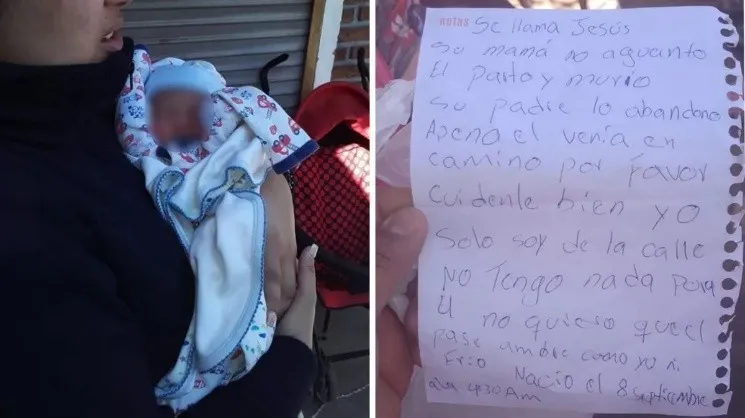 NOTAS Se llama Jesús
su mamá no aguanto
El parto y murio
su padre lo abandono
Apena el venia en
camino por favor
Cuidenle bien yo
Solo soy de la calle
No Tengo nada para
no quiero que el
pase ambre como yo ni
Frio Nacio el 8 Septiembre
4:30 Am